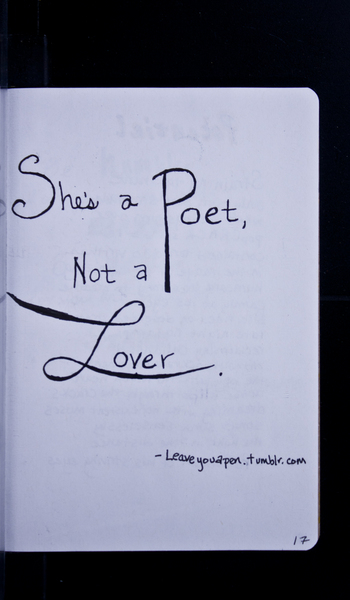 She's a Poet,
Not a
Lover.
- Leaveyouapen.tumblr.com
17